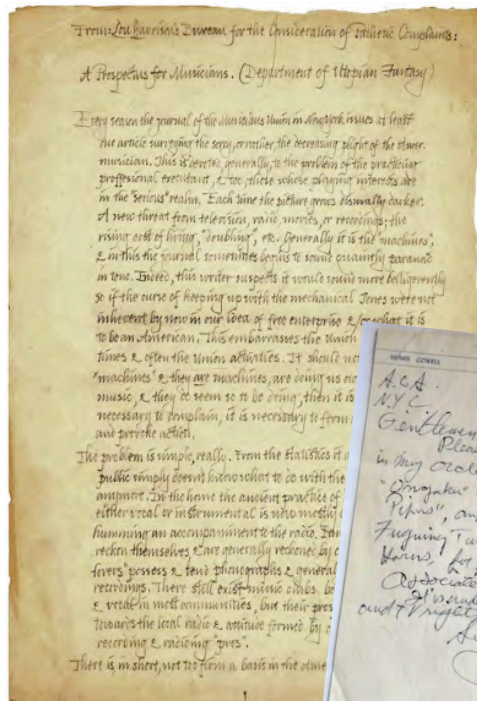 From: Lou Harrison's Bureau for the Consideration of Pathetic Complaints:
A Prospectus for Musicians. (Department of Utopian Fantasy)
Every season the journal of the Musicians Union in New York issues at least
one article surveying the sorry, or rather, the decreasing plight of the
musician. This is devoted, generally, to the problem of the practicing
professional executant, & too, those whose playing interests are
in the "serious" realm. Each time the picture grows dismally darker.
A new threat from television, radio, movies, or recordings; the
rising cost of living, "doubling", etc. Generally it is the "machines",
& in this the journal sometimes begins to sound quaintly paranoid
in tone. Indeed, this writer suspects it would sound more belligerently
so if the curse of keeping up with the mechanical Jones were not
inherent by now in our idea of free enterprise & of what it is
to be an American. This embarrasses the Union
times & often the Union activities. It should not
"machines" & they are machines, are doing us out
music, & they do seem so to be doing, then it is
necessary to complain, it is necessary to
and provoke action.
The problem is simple, really. From the statistics of
public simply doesn't know what to do with the
anymore. In the home the ancient practice of
either vocal or instrumental is now mostly
humming an accompaniment to the radio.
reckon themselves & are generally reckoned by
lovers" possess & tend phonographs & general
recordings. There still exist music clubs,
& vocal in most communities, but their
towards the local radio & attitude formed by
recording & radioing "pros".
There is in short, not too firm a basis in the
1
HENRY COWELL
A.C.A.
N.Y.C.
Gentlemen
Please
in my
"Ongaku"
Pipers", and
Fuguing Tu
Horns, for
Associated
and